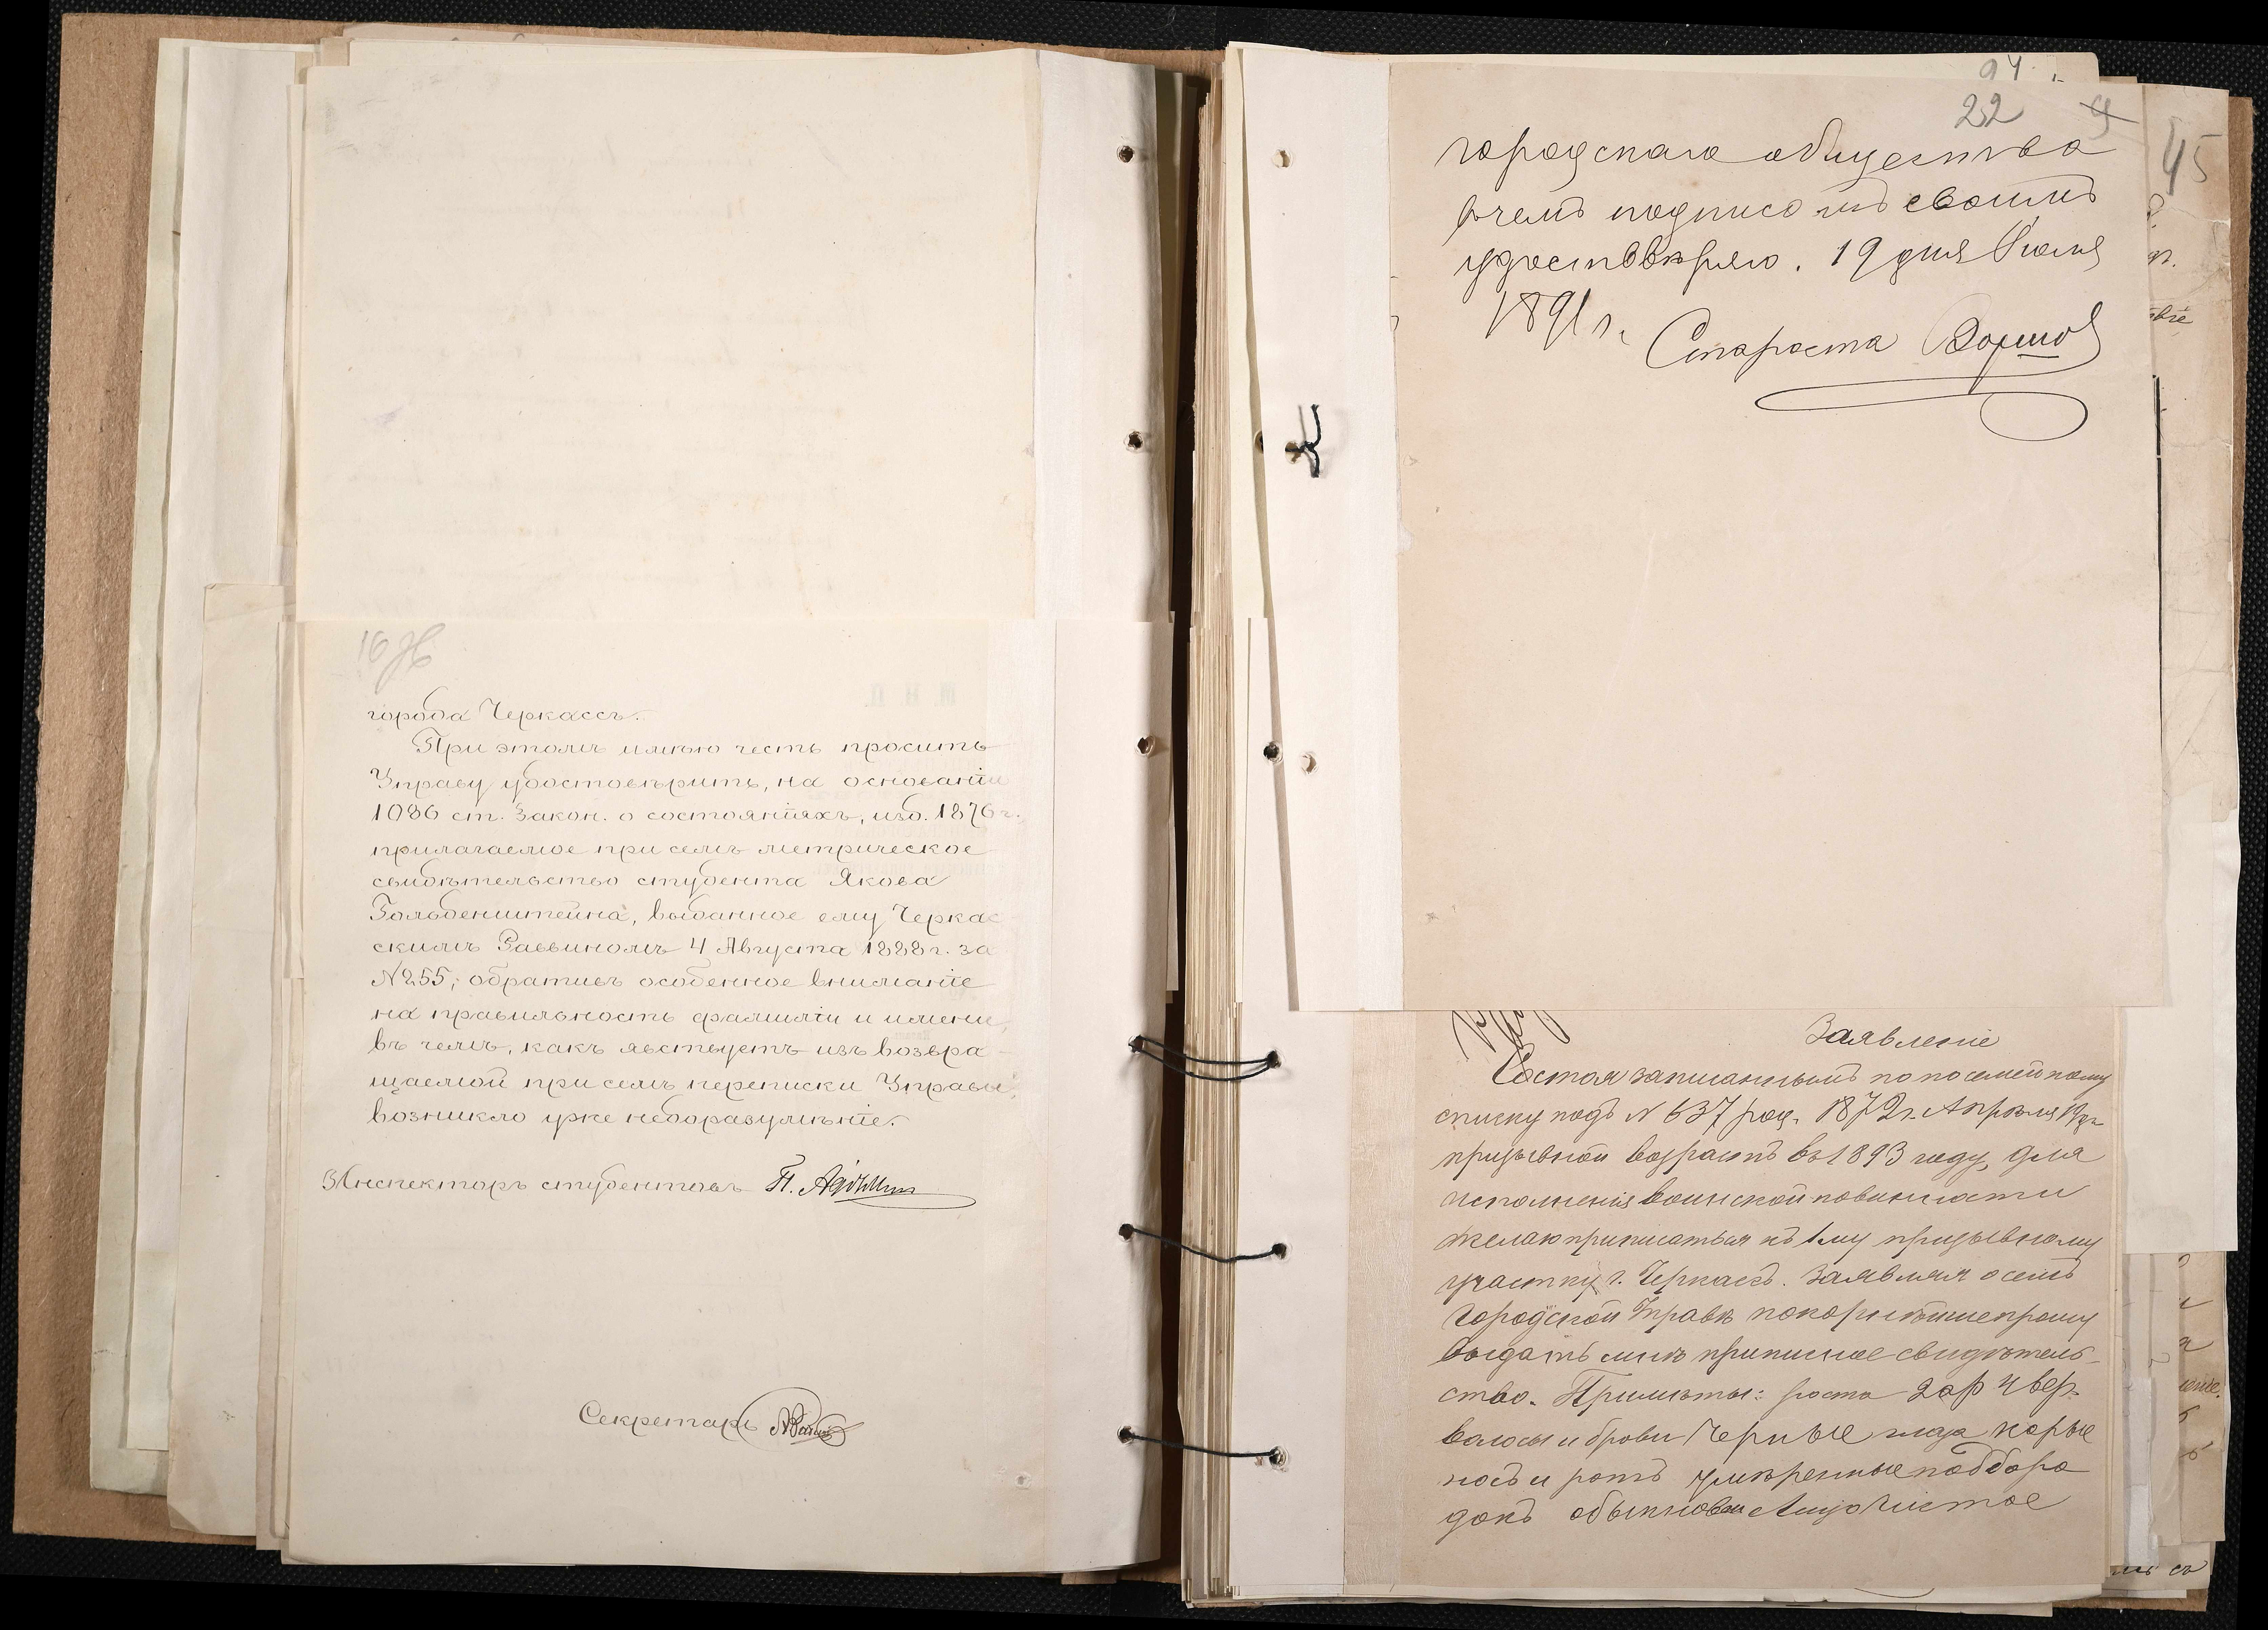 города Черкассъ.
При этомъ имѣю честь просить
Управу удостовѣрить, на основаніи
1086 ст. Закон. о состояніяхъ, изд. 1876 г.
прилагаемое при семъ метрическое
свидѣтельство студента Якова
Гольденштейна, выданное ему Черкас
скимъ Раввиномъ 4 Августа 1888 г. за
№255; обративъ особенное вниманіе
на правильность фамиліи и имени,
въ чемъ, какъ явствуетъ изъ возвра-
щаемой при семъ переписки Управы,
возникло уже недоразумѣніе.
Инспекторъ студентовъ
Секретарь
94
22
45
городскаго общества
вчемъ подписомъ своимъ
удостовѣряю. 19 дня Іюля
1891 г.
Староста
Заявленіе
Состоя записаннымъ по посемейному
списку подъ № 637 род. 1872 г. Апрѣля 19
призывной возрастъ въ 1893 году, для
исполненія воинской повинности
желаю приписаться къ 1му призывному
участку г. Черкасъ. Заявляя о семъ
Городской Управѣ покорнѣйше прошу
выдать мнѣ приписное свидѣтель-
ство. Примѣты: роста 2 ар 4 вер.
волосы и брови черные глаза карые
носъ и ротъ умѣренные подборо
докъ обыкновен лицо чистое